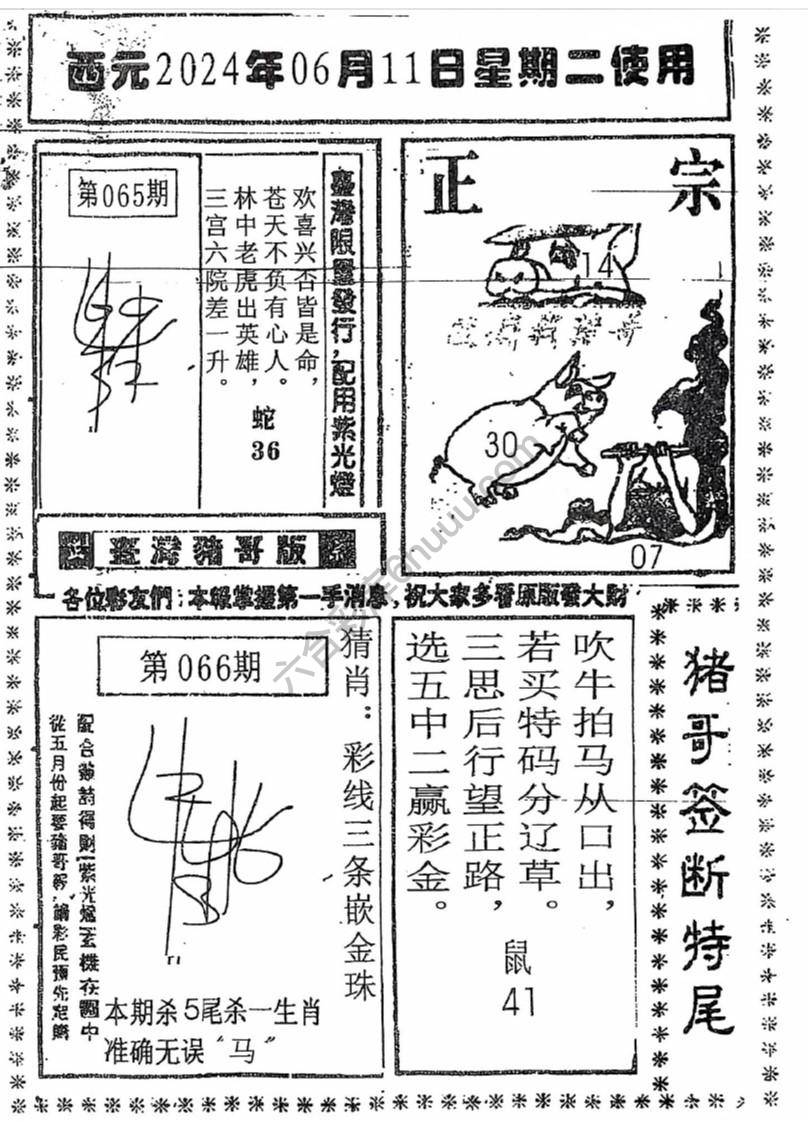 西元2024年06月11日星期二使用
第065期
臺灣限量發行,配用紫光燈
欢喜兴否皆是命,
苍天不负有心人。
林中老虎出英雄,
三宫六院差一升。
蛇
36
正宗
14
30
07
臺灣豬哥版
各位彩友們:本報掌握第一手消息,祝大家多看原版發大財
第066期
猜肖:彩线三条嵌金珠
從五月份起要豬哥報,請彩民預先定購
本期杀5尾杀一生肖
准确无误“马”
吹牛拍马从口出,
若买特码分辽草。
三思后行望正路,
选五中二赢彩金。
鼠
41
猪哥签断特尾
六合彩库6huuu.com